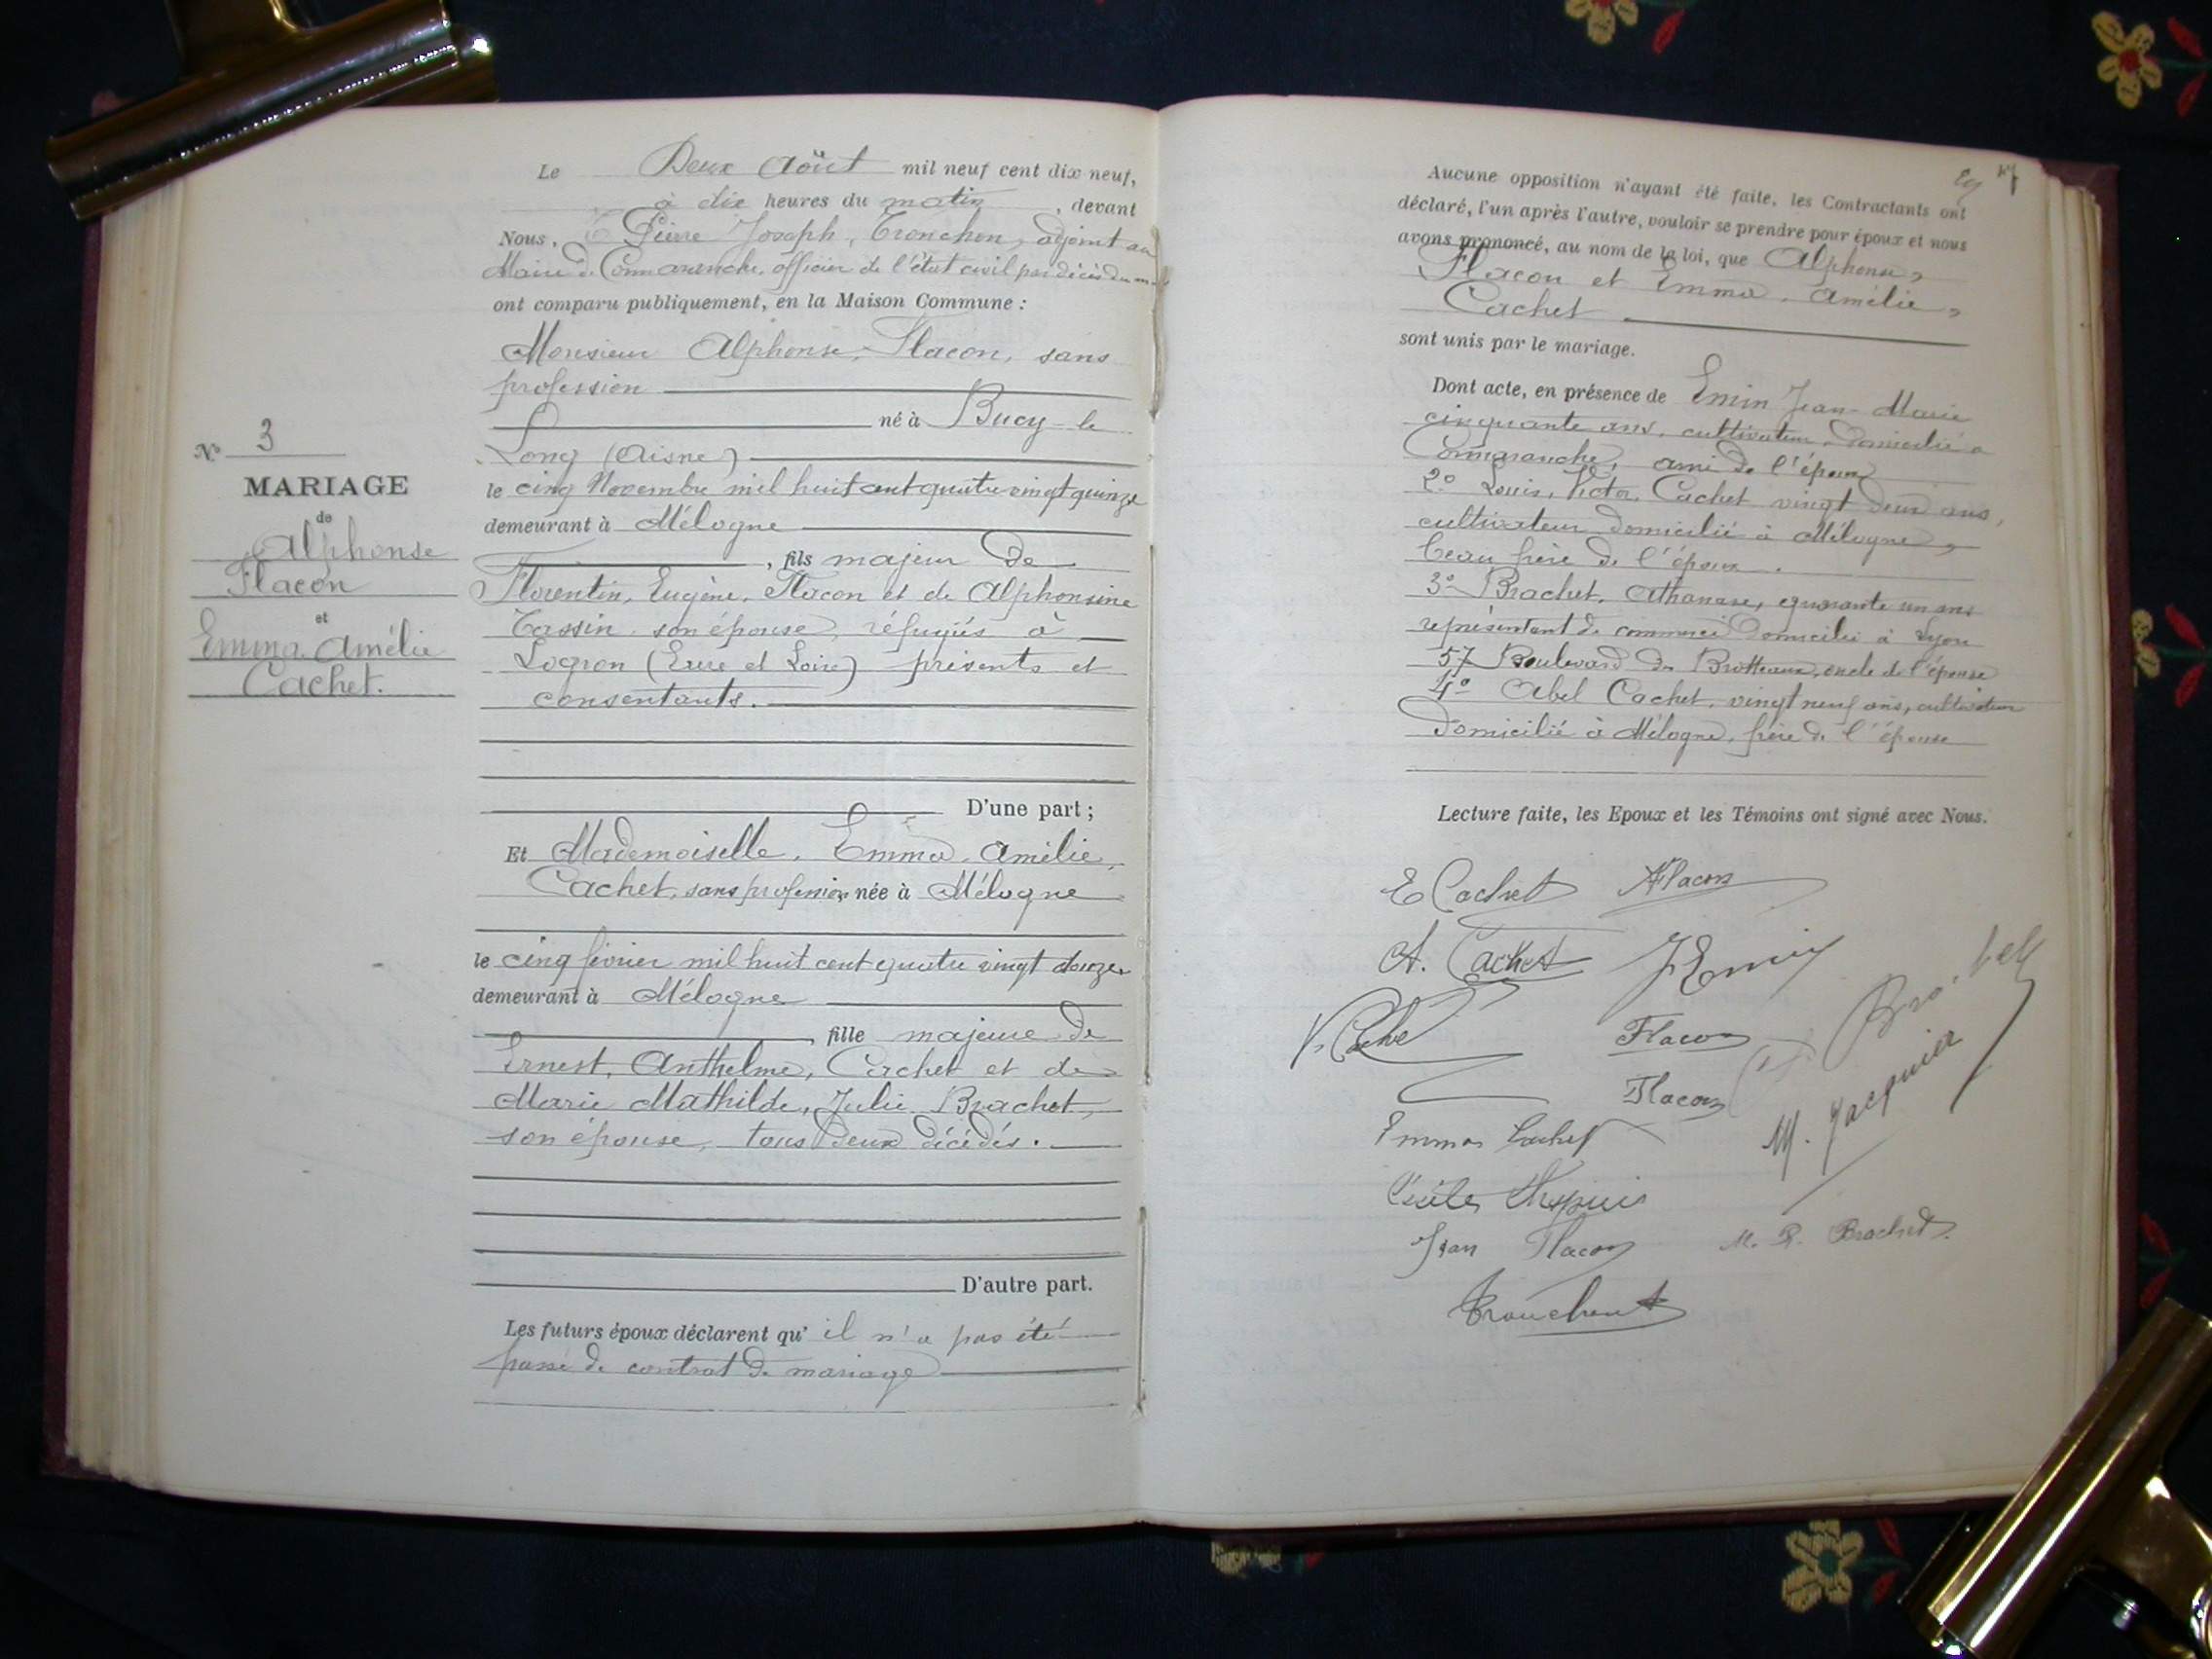 N° 3
MARIAGE
de
Alphonse
Flacon
et
Emma. Amélie
Cachet.
Le Deux Août mil neuf cent dix neuf,
à dix heures du matin, devant
Nous, Pierre Joseph, Tronchon, adjoint au
Maire de Connaranche, officier de l'état civil par décès du
ont comparu publiquement, en la Maison Commune :
Monsieur Alphonse, Flacon, sans
profession
né à Bucy-le
Long (Aisne)
le cinq Novembre mil huit cent quatre vingt quinze
demeurant à Mélogne
, fils majeur de
Florentin, Eugène, Flacon et de Alphonsine
Tassin son épouse, réfugiés à
Logron (Eure et Loire) présents et
consentants.
D'une part ;
Et Mademoiselle, Emma, Amélie,
Cachet, sans profession née à Mélogne
le cinq février mil huit cent quatre vingt douze
demeurant à Mélogne
, fille majeure de
Ernest, Anthelme, Cachet et de
Marie Mathilde, Julie Brachet,
son épouse, tous deux décédés.
D'autre part.
Les futurs époux déclarent qu' il n'a pas été
passé de contrat de mariage
47
Aucune opposition n'ayant été faite, les Contractants ont
déclaré, l'un après l'autre, vouloir se prendre pour époux et nous
avons prononcé, au nom de la loi, que Alphonse,
Flacon et Emma, Amélie,
Cachet
sont unis par le mariage.
Dont acte, en présence de Emin Jean-Marie
cinquante ans, cultivateur, domicilié à
Connaranche, ami de l'époux
2° Louis, Victor, Cachet vingt deux ans,
cultivateur domicilié à Mélogne,
beau frère de l'époux.
3° Brachet, Athanase, quarante un ans
représentant de commerce domicilié à Lyon
57 Boulevard des Brotteaux, oncle de l'épouse
4° Abel Cachet, vingt neuf ans, cultivateur
domicilié à Mélogne, frère de l'épouse
Lecture faite, les Epoux et les Témoins ont signé avec Nous.
E Cachet AFlacon
A. Cachet JEmin
V. Cachet Flacon Brachet
Flacon M. Jacquier
Emma Cachet
Jean Flacon M. R. Brachet
Tronchon